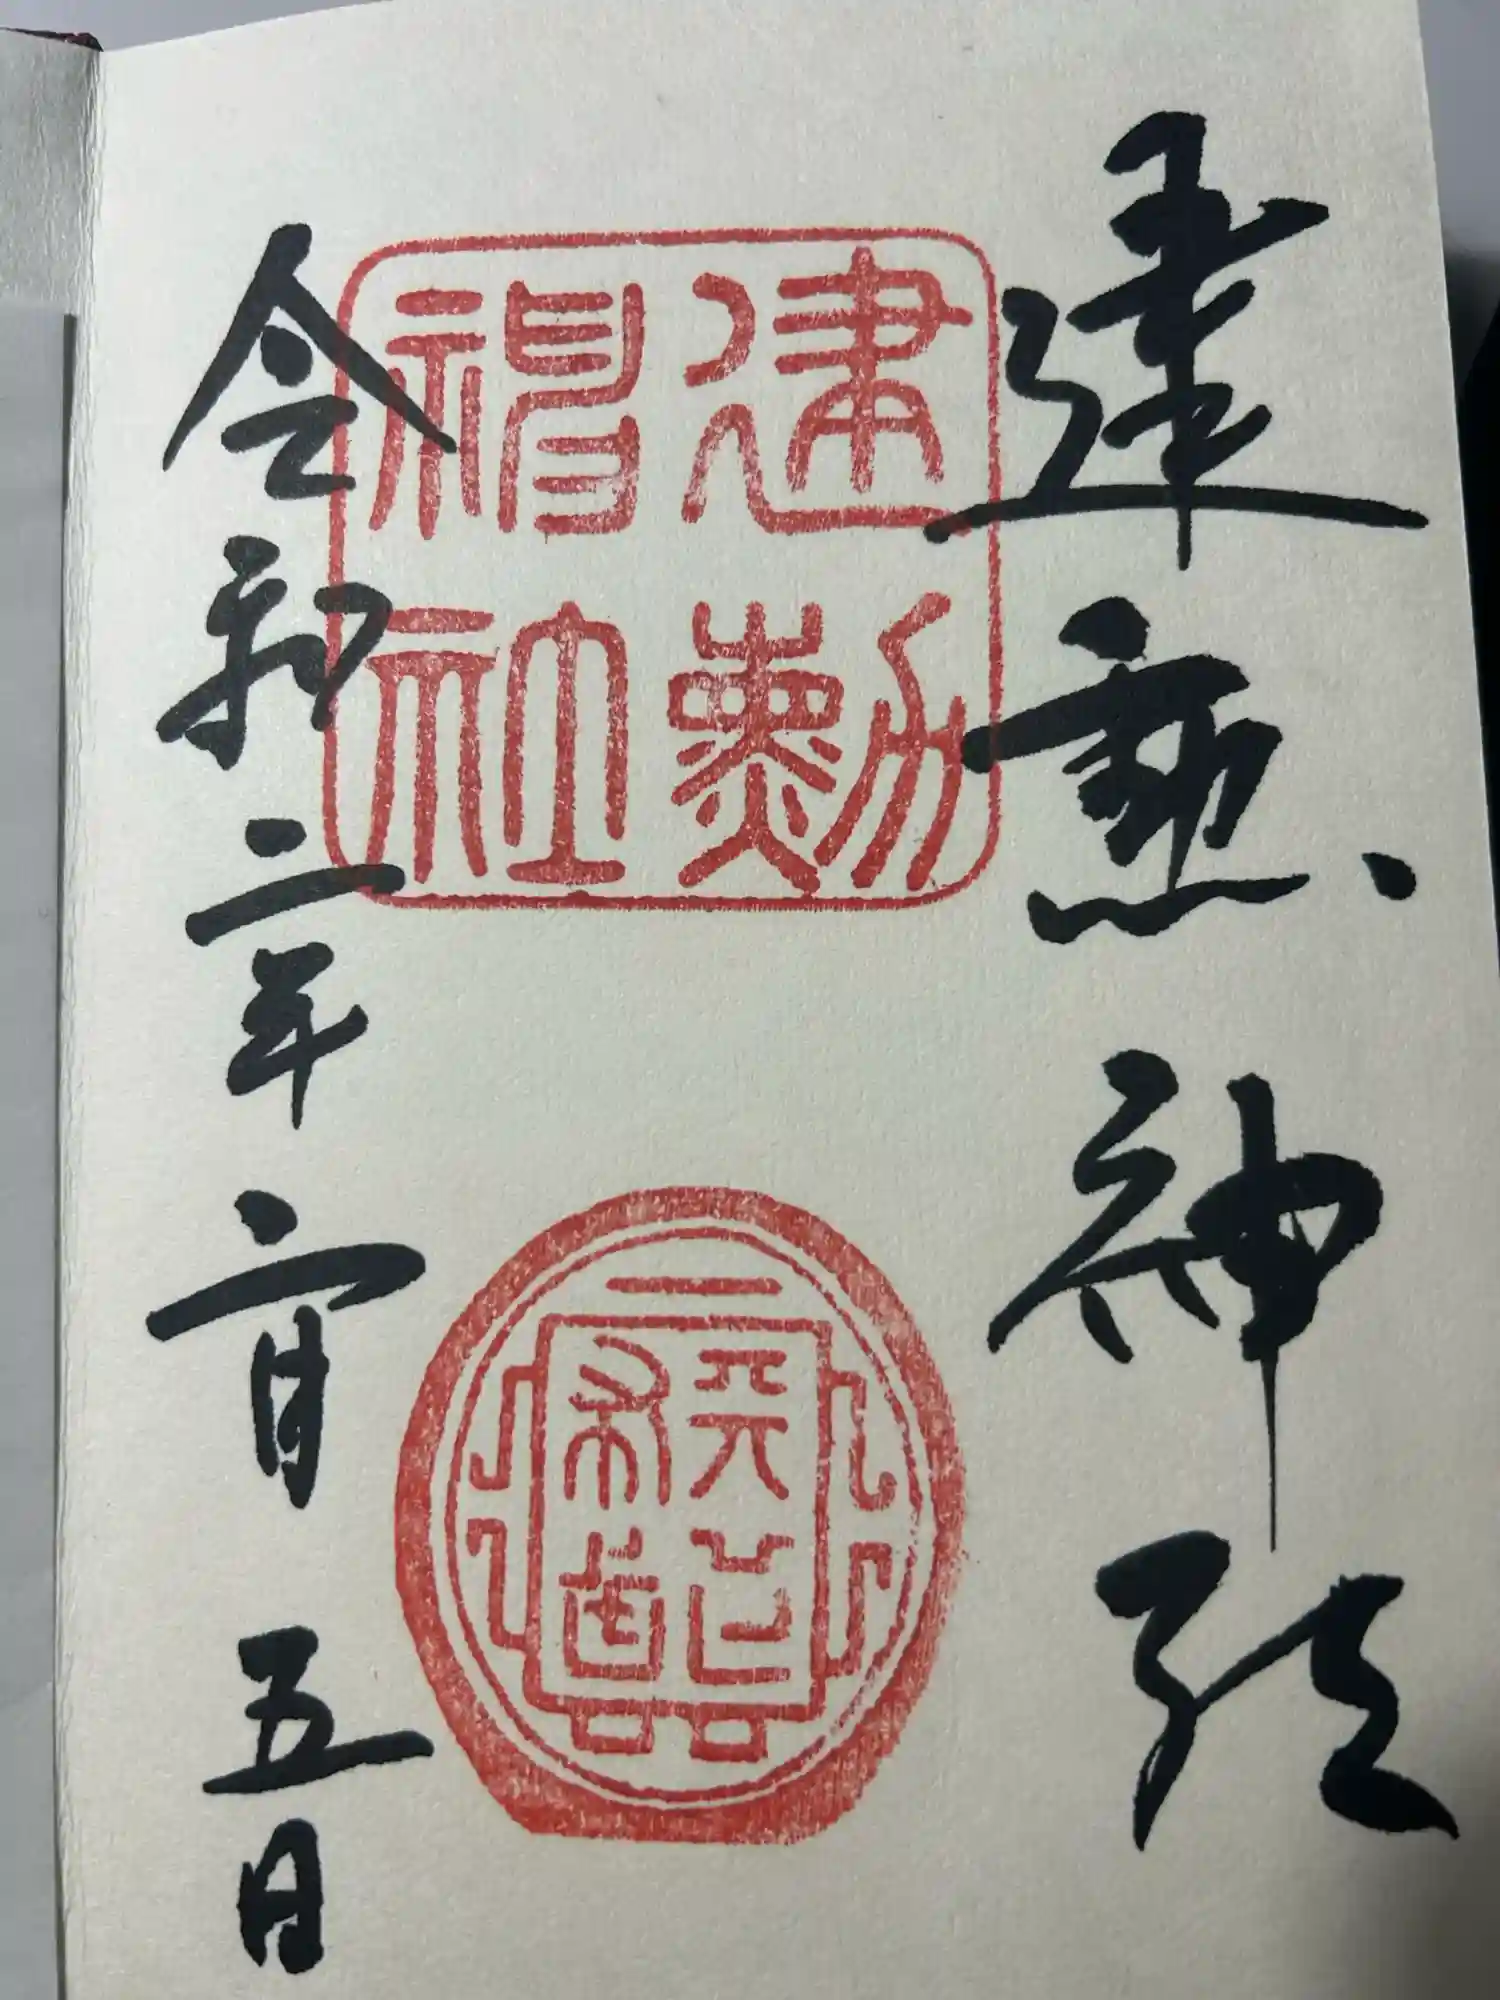 建勲神社
建勳
神社
令和二年二月五日